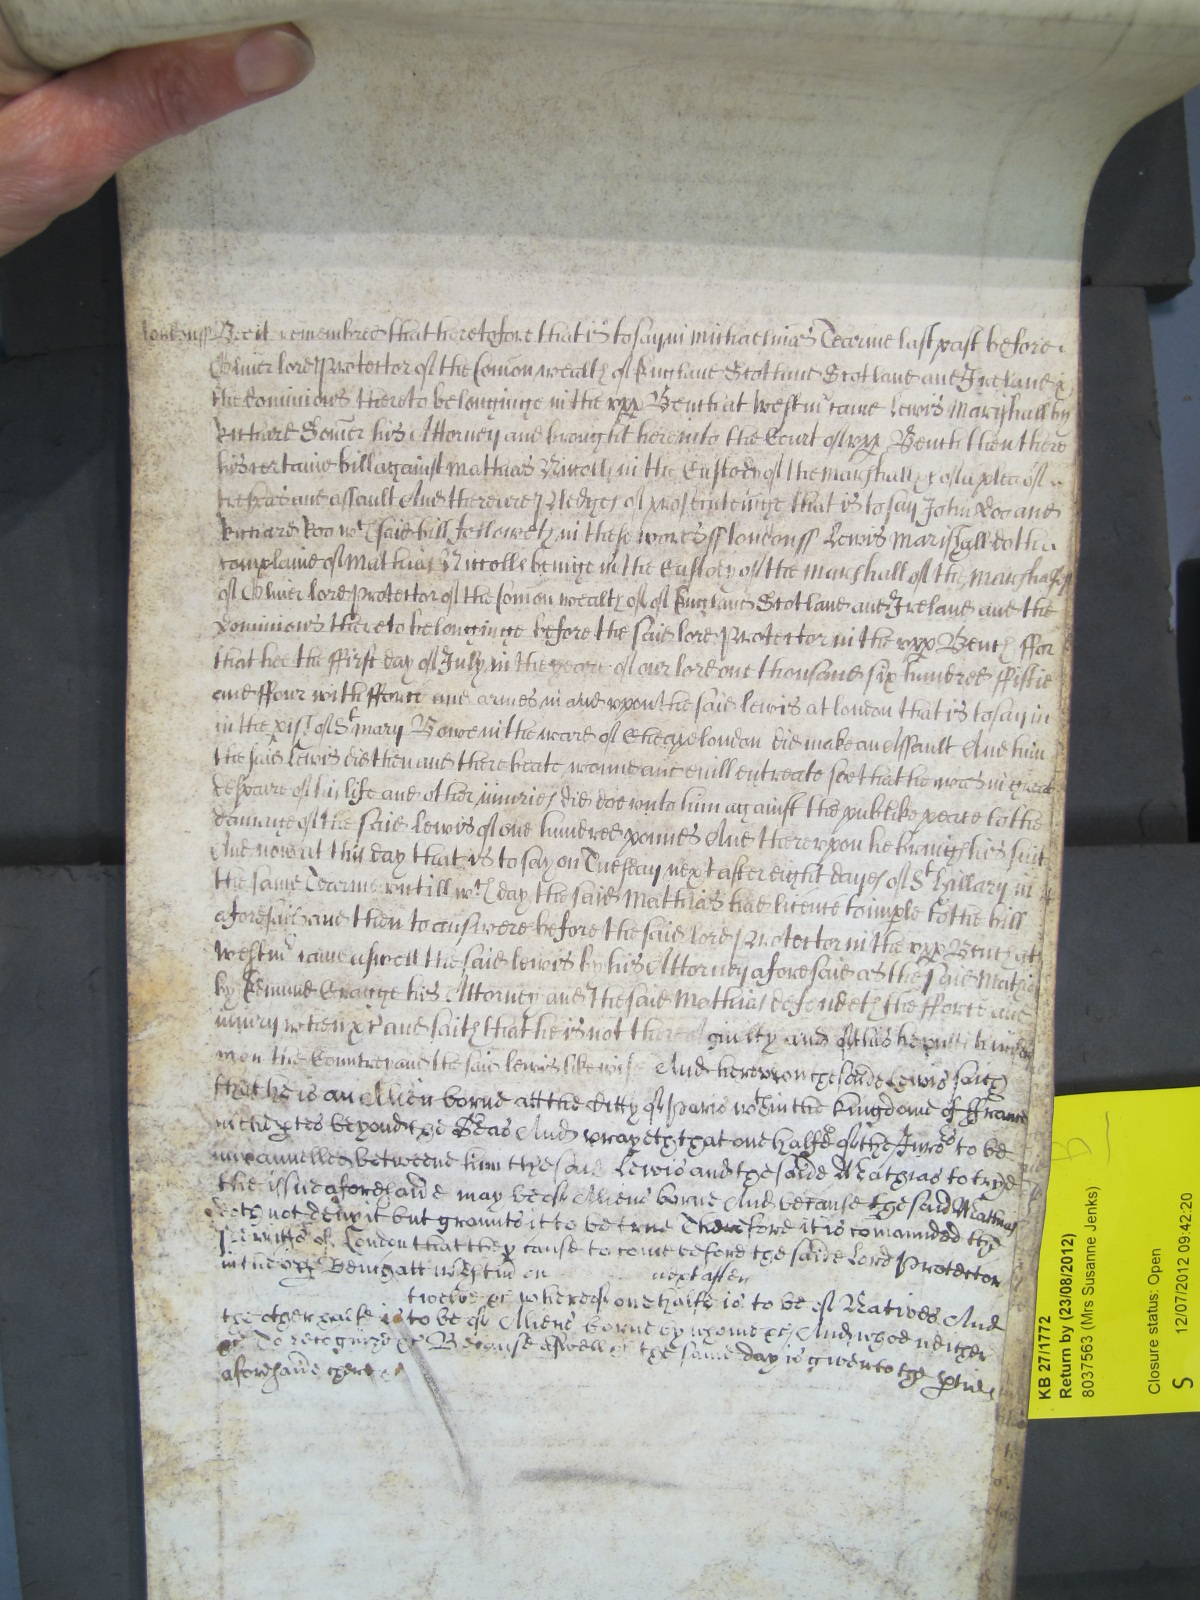 londonss Bee it remembred that heretofore that is to say in Michaelmas Tearme last past before
Oliver lord Protector of the Comon wealth of England Scotland Scotland and Ireland &
the dominions thereto belonginge in the vpp Bench at Westmr came Lewis Marishall by
Richard Somer his Attorney and brought here into the Court of vpp Bench then there
his certaine bill against Mathias Nicolls in the Custody of the Marshall &c of a plea of
trespas and assault And there are pledges of prosecutinge that is to say John Doo and
Richard Roo wch said bill followeth in these words ss londonss Lewis Marishall doth
complaine of Mathias Nicolls beinge in the Custody of the Marshall of the Marshalsy
of Oliver lord Protector of the Comon wealth of of England Scotland and Ireland and the
dominions thereto belonginge before the said lord Protector in the vpp Bench ffor
that hee the ffirst day of July in the yeare of our lord one thousand six hundred ffiftie
and ffour with fforce and armes in and vpon the said Lewis at london that is to say in
in the pish of St Mary Bowe in the ward of Cheape london did make an Assault And him
the said Lewis did then and there beate wound and evill entreate soe that he was in great
despaire of his life and other iniuries did doe vnto him against the publike peace to the
damage of the said Lewis of one hundred pounds And therevpon he bringeth his suit
And now at this day that is to say on Tuesday next after eight dayes of St Hillary in
the same Tearme vntill wch day the said Mathias had licence to imple to the bill
aforesaid and then to answere before the said lord Protector in the vpp Bench at
Westmr came aswell the said Lewis by his Attorney aforesaid as the said Mathias
by Edmund George his Attorney and the said Mathias defendeth the fforce and
iniury when &c and saith that he is not thereof guilty and of this he putteth himself
vpon the Countrey and the said Lewis likewise And herevpon the saide Lewis saith
that he is an Alien borne att the Citty of Paris wthin the Kingdome of ffrance
in the ptes beyond the Seas And prayeth that one halfe of the Jurors to be
impannelled betweene him the said Lewis and the saide Mathias to trye
the issue aforesaid may be of Aliens borne And because the said Mathias
doth not deny it but graunts it to be true Therefore it is comanded the
Sherriffs of London that they cause to come before the saide Lord Protector
in the vpp Bench att Westmr on next after
twelve &c whereof one halfe is to be of Natives And
the other halfe is to be of Aliens borne by whome &c And whoe neither
&c To recognize &c Because aswell &c the same day is given to the pties
aforesaid there &c
KB 27/1772
Return by (23/08/2012)
8037563 (Mrs Susanne Jenks)
Closure status: Open
S 12/07/2012 09:42:20